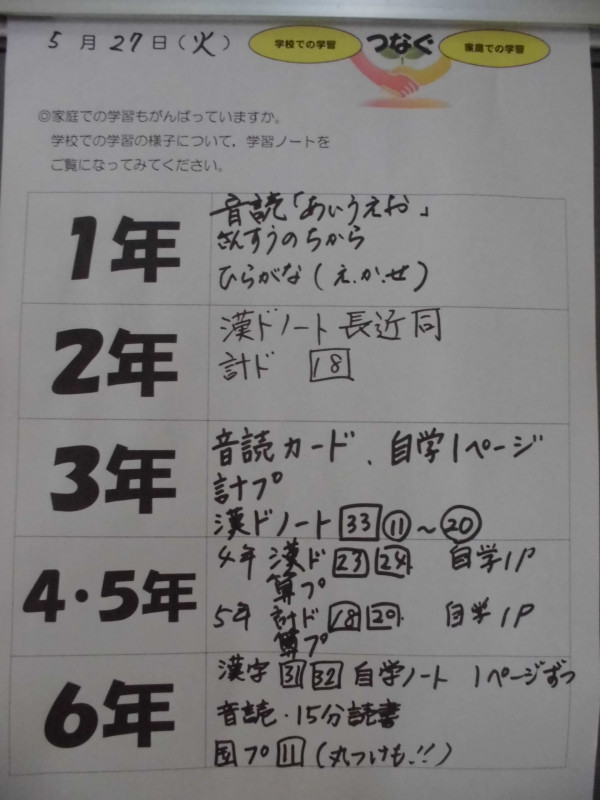 5月27日(火)
学校での学習 つなぐ 家庭での学習
◎家庭での学習もがんばっていますか。
学校での学習の様子について，学習ノートを
ご覧になってみてください。
1年
音読「あいうえお」
さんすうのちから
ひらがな(え.か.せ)
2年
漢ドノート 長近同
計ド 18
3年
音読カード、自学1ページ
計プ
漢ドノート 33 ⑪～⑳
4・5年
4年 漢ド 23 24 自学1P
算プ
5年 計ド 18 20 自学1P
算プ
6年
漢字 31 32 自学ノート 1ページずつ
音読・15分読書
国プ 11 (丸つけも.!!)